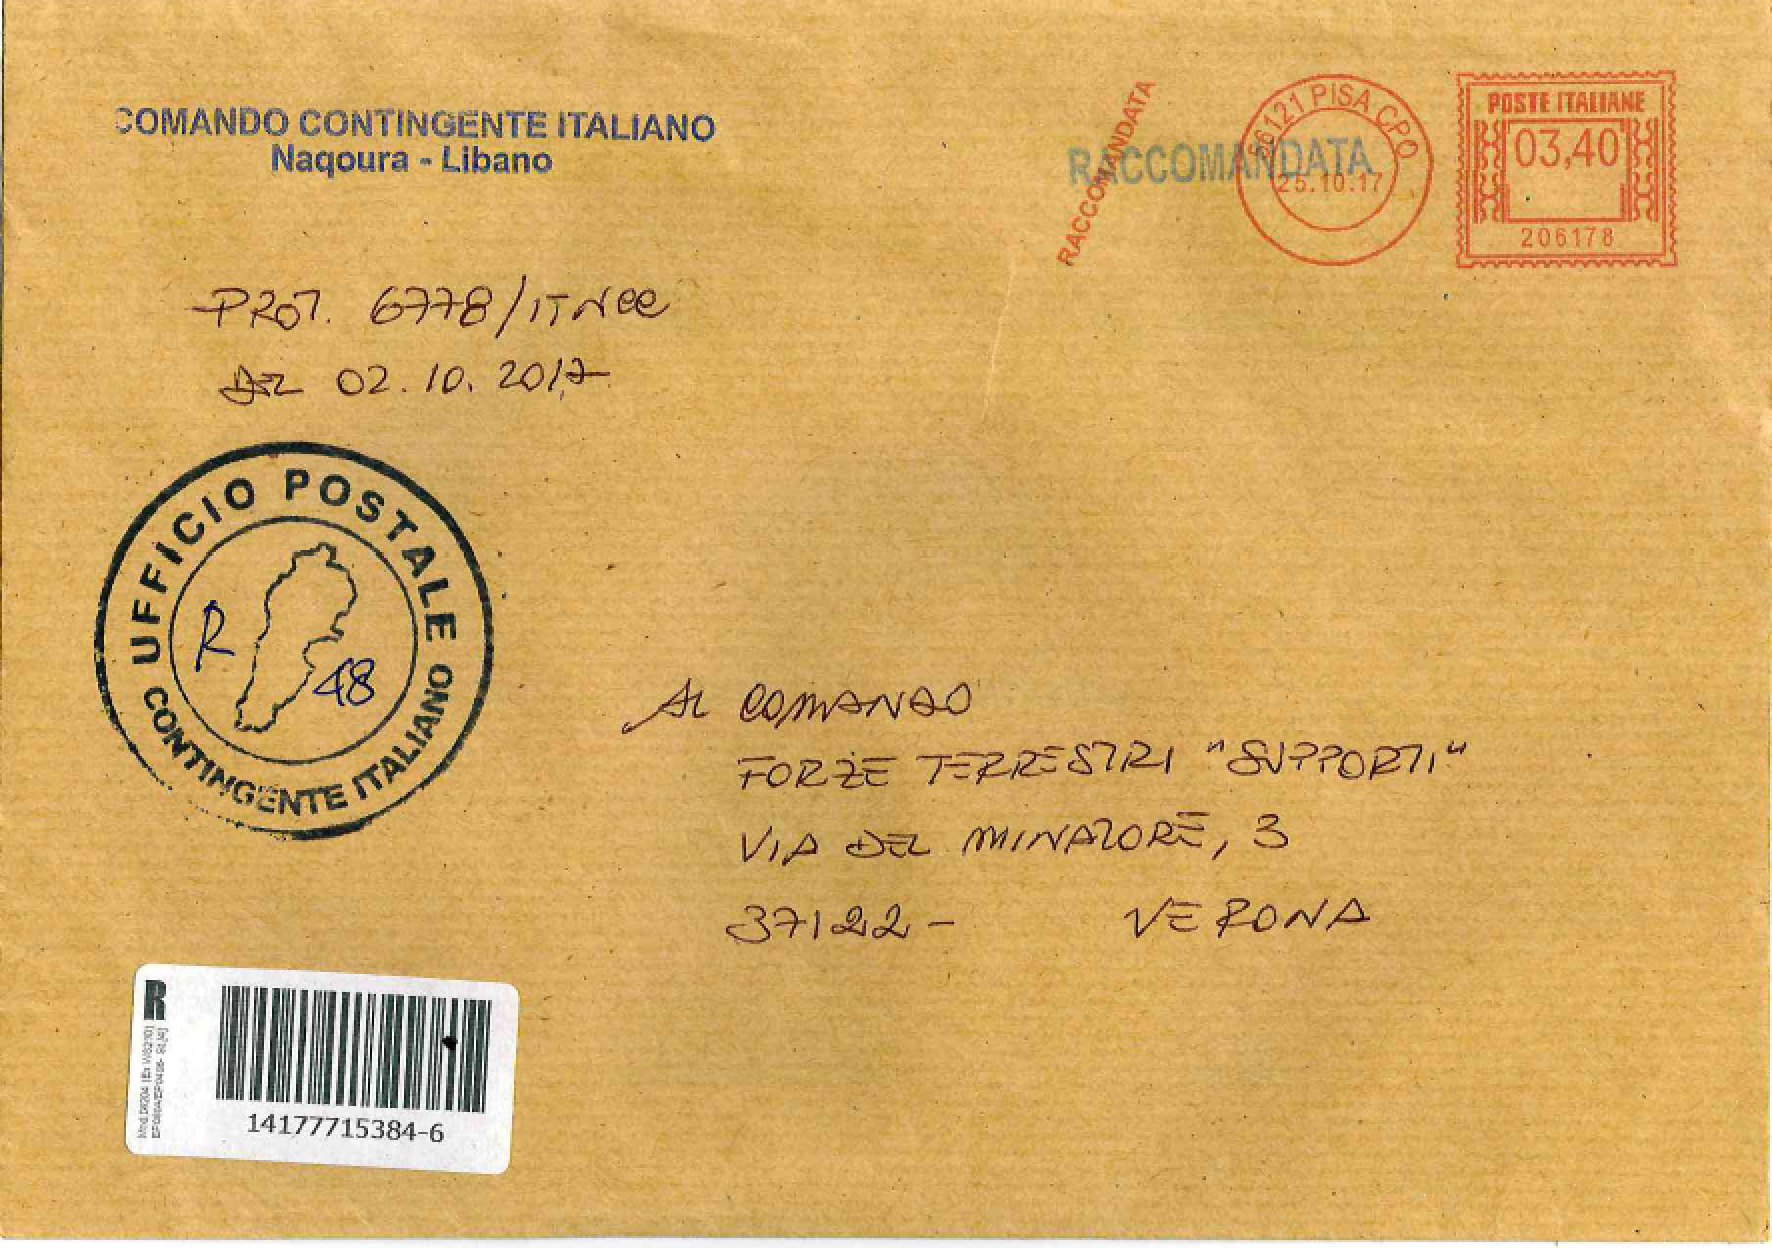 COMANDO CONTINGENTE ITALIANO
Naqoura - Libano
RACCOMANDATA
RACCOMANDATA
56121 PISA CPO
25.10.17
POSTE ITALIANE
03,40
206178
PROT. 6778/ITNCC
DEL 02.10.2017
UFFICIO POSTALE
R
48
CONTINGENTE ITALIANO
AL COMANDO
FORZE TERRESTRI "SUPPORTI"
VIA DEL MINATORE, 3
37122- VERONA
R
14177715384-6